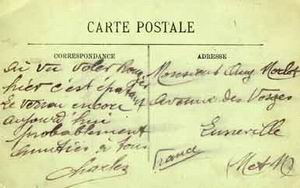 CARTE POSTALE
CORRESPONDANCE
ADRESSE
ai vu voler
hier c'est
Le verrai encore
aujourd'hui
probablement
Amitiés à tous
Charles
Monsieur Aug
Avenue des Vosges
Luneville
France
M et M